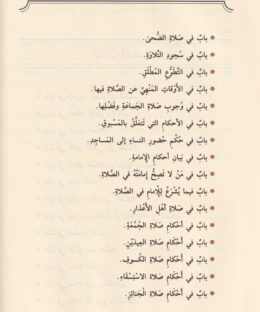 بابٌ في صَلاةِ الضُّحَى.
بابٌ في سُجودِ التِّلاوَةِ.
بابٌ في التَّطَوُّعِ المُطْلَقِ.
بابٌ في الأَوْقاتِ المَنْهِيِّ عنِ الصَّلاةِ فيها.
بابٌ في وُجوبِ صَلاةِ الجَماعَةِ وفَضْلِها.
بابٌ في الأحكامِ التي تَتَعَلَّقُ بالمَسْبوقِ.
بابٌ في حُكْمِ حُضورِ النساءِ إلى المَساجِدِ.
بابٌ في بَيانِ أحكامِ الإمامةِ.
بابٌ في مَنْ لا تَصِحُّ إمامَتُهُ في الصَّلاةِ.
بابٌ فيما يُشْرَعُ لِلإمامِ في الصَّلاةِ.
بابٌ في صَلاةِ أَهْلِ الأَعْذارِ.
بابٌ في أَحْكامِ صَلاةِ الجُمُعَةِ.
بابٌ في أَحْكامِ صَلاةِ العِيدَيْنِ.
بابٌ في أَحْكامِ صَلاةِ الكُسوفِ.
بابٌ في أَحْكامِ صَلاةِ الاسْتِسْقاءِ.
بابٌ في أَحْكامِ صَلاةِ الجَنائِزِ.